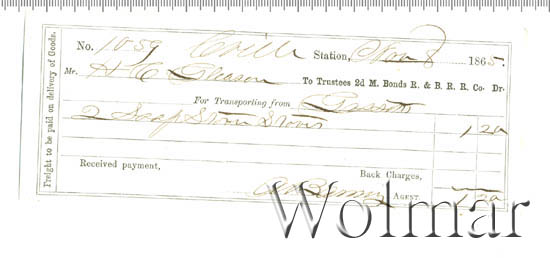 Freight to be paid on delivery of Goods.
No. 1059 Station, Nov 8 1865.
Mr. H C Gleason To Trustees 2d M. Bonds R. & B. R. R. Co. Dr.
For Transporting from Gassetts
2 Soap Stone Stoves 1 20
Back Charges,
Received payment,
AGENT. 1.20
Wolmar